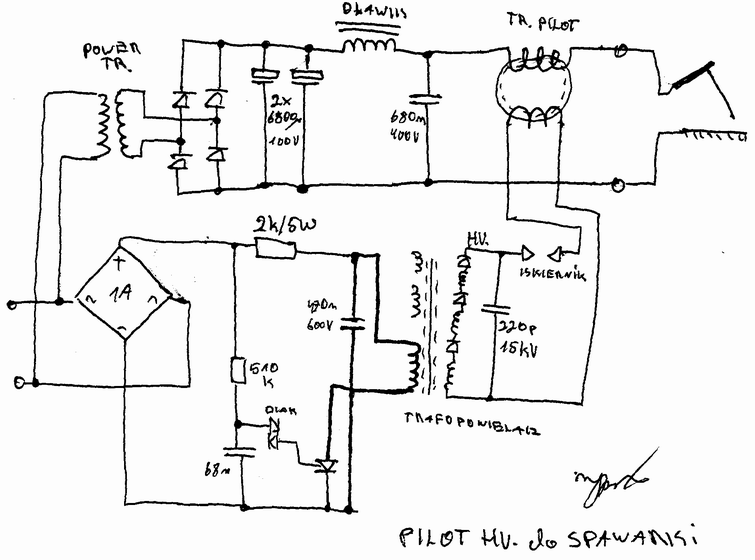 DŁAWIK
TR. PILOT
POWER
TR.
2x
680µ
100V
680n
400V
2k/5W
HV.
ISKIERNIK
+
1A
~ ~
-
470n
600V
220p
15kV
510
k
DIAK
68n
TRAFOPOWIELACZ
PILOT HV. do SPAWARKI